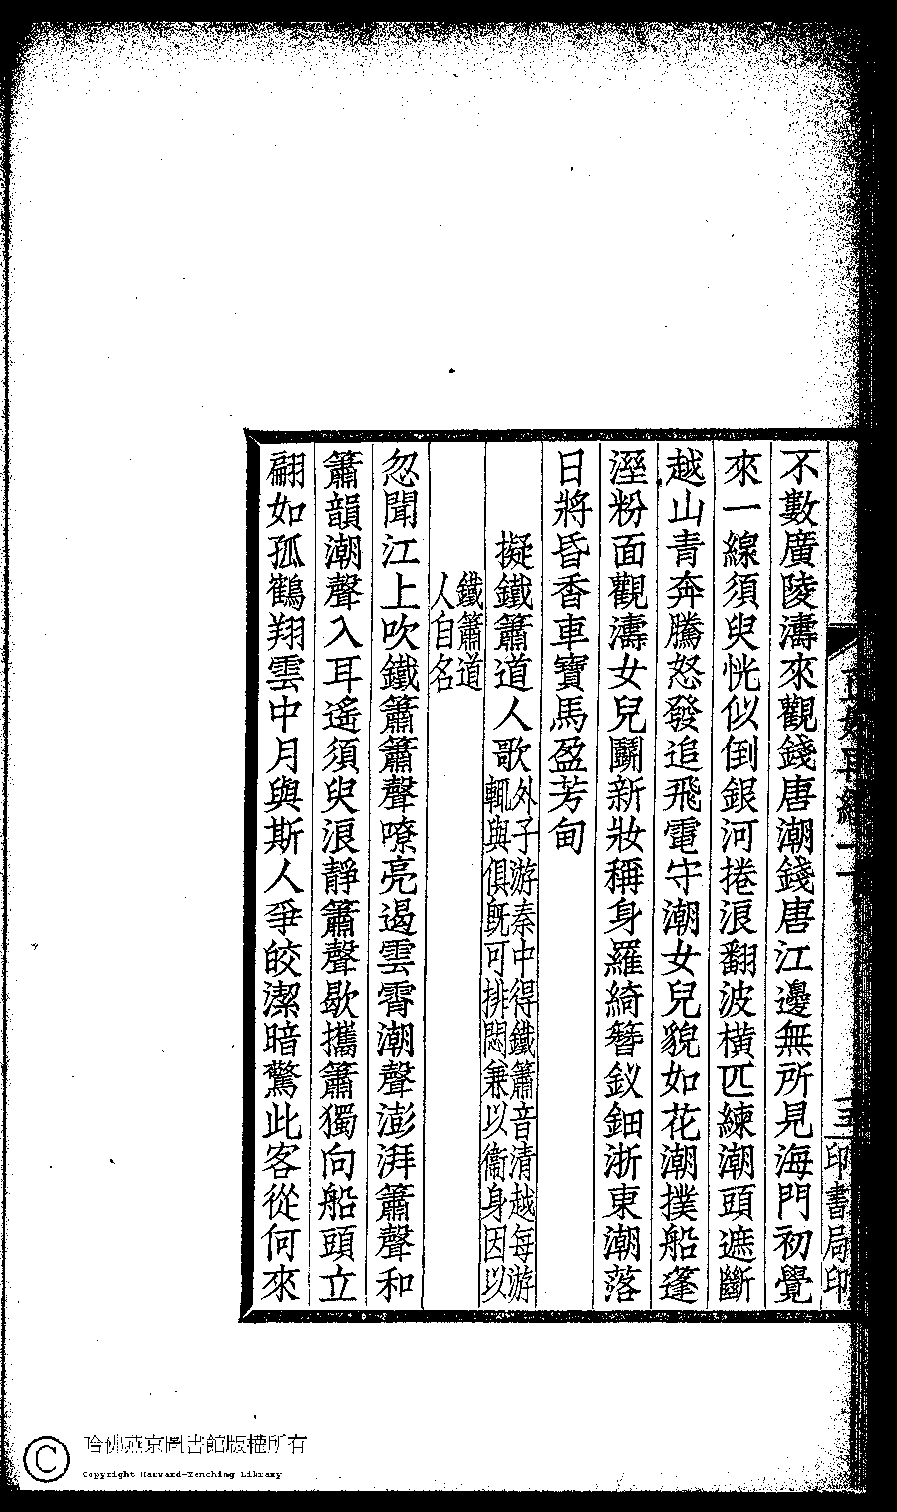 不數廣陵濤來觀錢唐潮錢唐江邊無所見海門初覺
來一線須臾恍似倒銀河捲浪翻波橫匹練潮頭遮斷
越山青奔騰怒發追飛電守潮女兒貌如花潮撲船篷
溼粉面觀濤女兒鬭新妝稱身羅綺簪釵鈿浙東潮落
日將昏香車寶馬盈芳甸
擬鐵簫道人歌外子游秦中得鐵簫音清越每游
輒與俱既可排悶兼以衞身因以
鐵簫道
人自名
忽聞江上吹鐵簫簫聲嘹亮遏雲霄潮聲澎湃簫聲和
簫韻潮聲入耳遙須臾浪靜簫聲歇攜簫獨向船頭立
翩如孤鶴翔雲中月與斯人爭皎潔暗驚此客從何來
印書局印
哈佛燕京圖書館版權所有
Copyright Harvard-Yenching Library